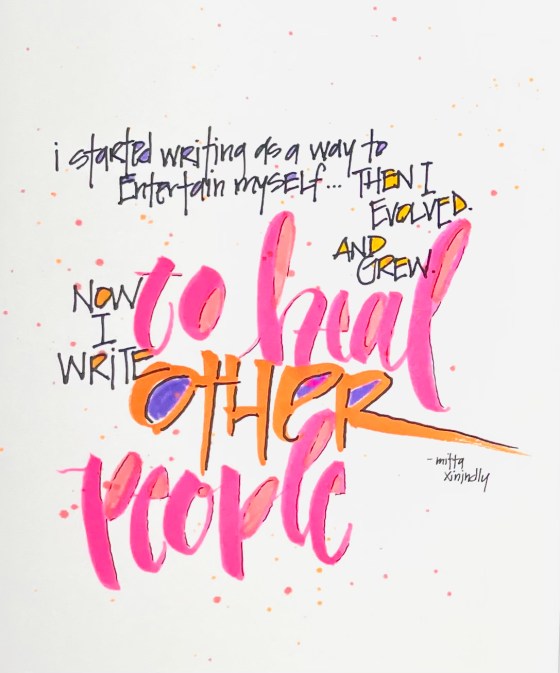 i started writing as a way to
Entertain myself... THEN I
EVOLVED.
AND
GREW.
NOW
I
WRITE
to heal
OTHER
people
- mitta
xinindly